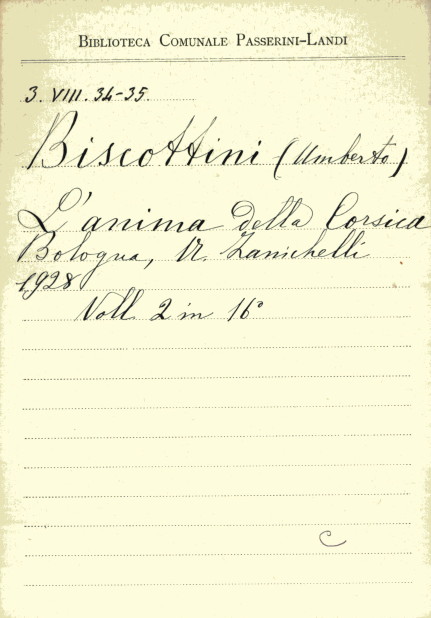 BIBLIOTECA COMUNALE PASSERINI-LANDI
3. VIII. 34-35.
Biscottini (Umberto)
L'anima della Corsica
Bologna, N. Zanichelli
1928
Voll. 2 in 16°
C